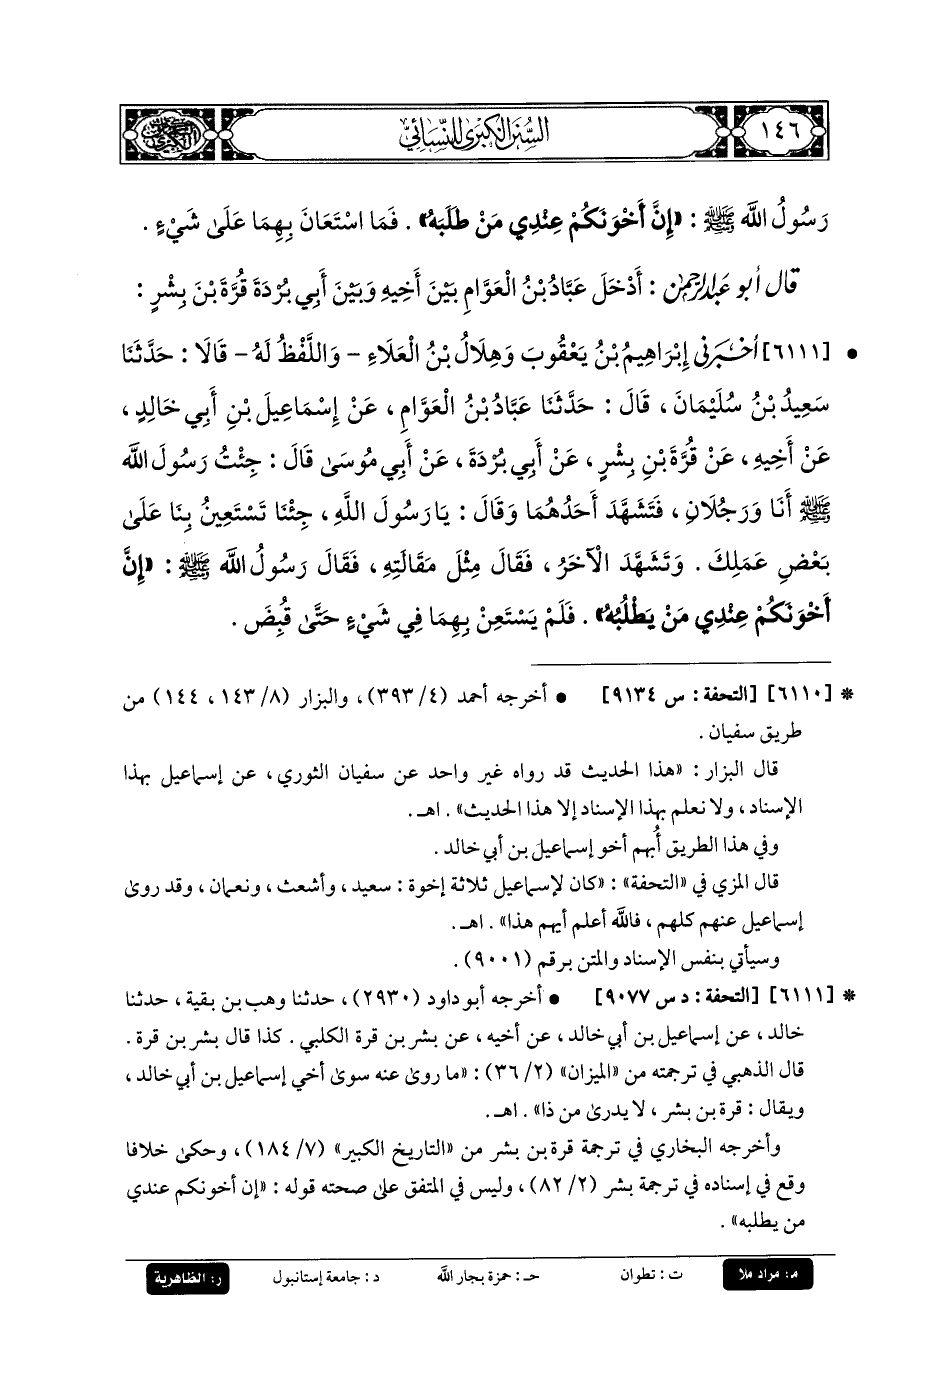 ١٤٦
السُّنَنُ الكِبْرَى لِلنِّسَائِيِّ
رَسُولُ اللَّه ﷺ : «إِنَّ أَخْوَنَكُمْ عِنْدِي مَنْ طَلَبَهُ» . فَمَا اسْتَعَانَ بِهِمَا عَلَىٰ شَيْءٍ .
قال أبو عبد الرحمن : أَدْخَلَ عَبَّادُ بْنُ الْعَوَّامِ بَيْنَ أَخِيهِ وَبَيْنَ أَبِي بُرْدَةَ قُرَّةَ بْنَ بِشْرٍ :
• [٦١١١] أَخْبَرَنِي إِبْرَاهِيمُ بْنُ يَعْقُوبَ وَهِلَالُ بْنُ الْعَلَاءِ - وَاللَّفْظُ لَهُ - قَالَا : حَدَّثَنَا
سَعِيدُ بْنُ سُلَيْمَانَ ، قَالَ : حَدَّثَنَا عَبَّادُ بْنُ الْعَوَّامِ ، عَنْ إِسْمَاعِيلَ بْنِ أَبِي خَالِدٍ ،
عَنْ أَخِيهِ ، عَنْ قُرَّةَ بْنِ بِشْرٍ ، عَنْ أَبِي بُرْدَةَ ، عَنْ أَبِي مُوسَىٰ قَالَ : جِئْتُ رَسُولَ اللَّه
ﷺ أَنَا وَرَجُلَانِ ، فَتَشَهَّدَ أَحَدُهُمَا وَقَالَ : يَا رَسُولَ اللَّهِ ، جِئْنَا تَسْتَعِينُ بِنَا عَلَىٰ
بَعْضِ عَمَلِكَ . وَتَشَهَّدَ الْآخَرُ ، فَقَالَ مِثْلَ مَقَالَتِهِ ، فَقَالَ رَسُولُ اللَّه ﷺ : «إِنَّ
أَخْوَنَكُمْ عِنْدِي مَنْ يَطْلُبُهُ» . فَلَمْ يَسْتَعِنْ بِهِمَا فِي شَيْءٍ حَتَّىٰ قُبِضَ .
* [٦١١٠] [التحفة : س ٩١٣٤] • أخرجه أحمد (٤/ ٣٩٣) ، والبزار (٨/ ١٤٣ ، ١٤٤) من
طريق سفيان .
قال البزار : «هذا الحديث قد رواه غير واحد عن سفيان الثوري ، عن إسماعيل بهذا
الإسناد ، ولا نعلم بهذا الإسناد إلا هذا الحديث» . اهـ .
وفي هذا الطريق أُبهم أخو إسماعيل بن أبي خالد .
قال المزي في «التحفة» : «كان لإسماعيل ثلاثة إخوة : سعيد ، وأشعث ، ونعمان ، وقد روىٰ
إسماعيل عنهم كلهم ، فاللَّه أعلم أيهم هذا» . اهـ .
وسيأتي بنفس الإسناد والمتن برقم (٩٠٠١) .
* [٦١١١] [التحفة : د س ٩٠٧٧] • أخرجه أبو داود (٢٩٣٠) ، حدثنا وهب بن بقية ، حدثنا
خالد ، عن إسماعيل بن أبي خالد ، عن أخيه ، عن بشر بن قرة الكلبي . كذا قال بشر بن قرة .
قال الذهبي في ترجمته من «الميزان» (٢/ ٣٦) : «ما روىٰ عنه سوىٰ أخي إسماعيل بن أبي خالد ،
ويقال : قرة بن بشر ، لا يدرىٰ من ذا» . اهـ .
وأخرجه البخاري في ترجمة قرة بن بشر من «التاريخ الكبير» (٧/ ١٨٤) ، وحكىٰ خلافا
وقع في إسناده في ترجمة بشر (٢/ ٨٢) ، وليس في المتفق علىٰ صحته قوله : «إن أخونكم عندي
من يطلبه» .
مـ: مراد ملا ت : تطوان حـ : حمزة بجار اللَّه د : جامعة إستانبول ر: الظاهرية